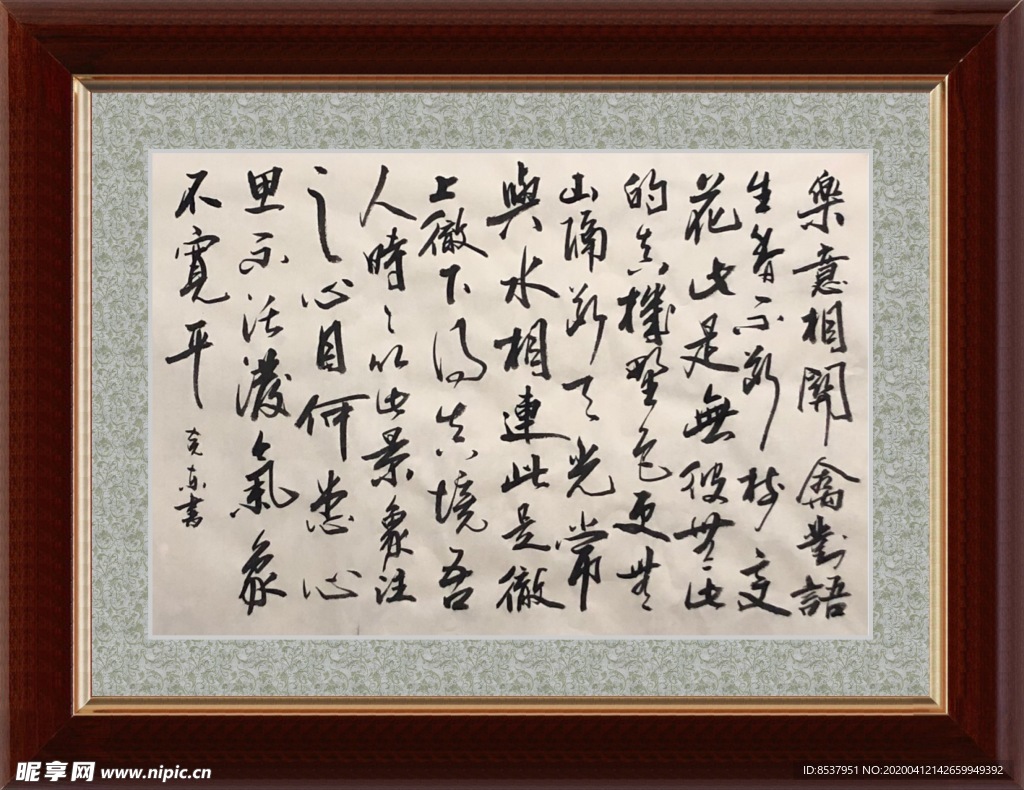 樂意相關禽對語
生香不斷樹交
花此是無彼無此
的真機野色更無
山隔斷天光常
與水相連此是徹
上徹下得真境吾
人時々以此景象注
之心目何患心
思不活潑氣象
不寬平
昵享网 www.nipic.cn
ID:8537951 NO:20200412142659949392